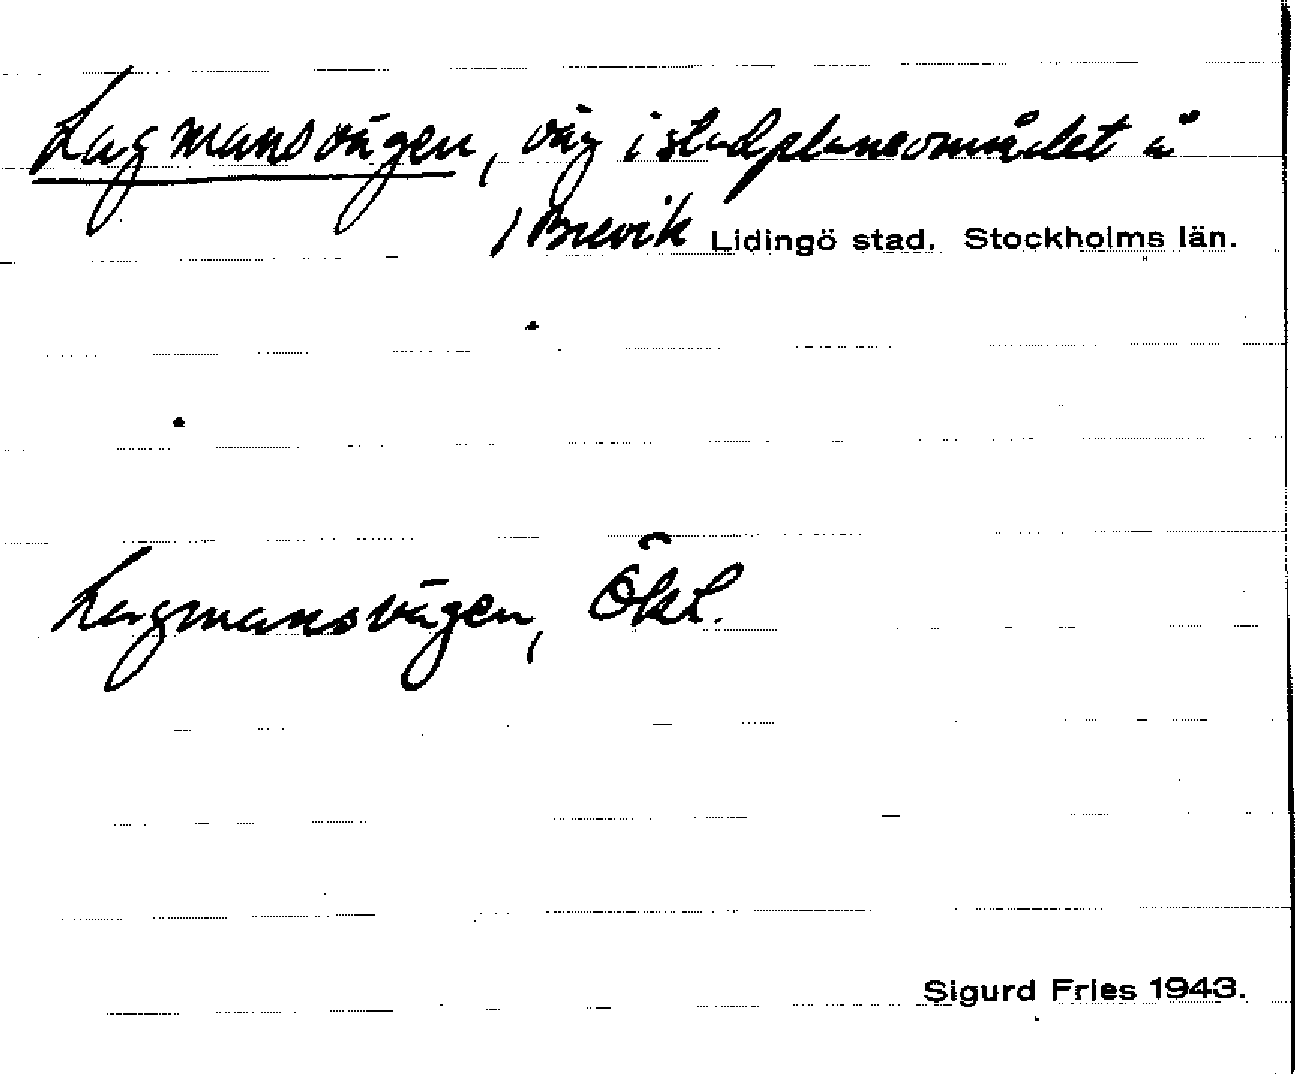 Lagmansvägen, väg i stadplansområdet å
/ Brevik Lidingö stad. Stockholms län.
Lagmansvägen, Ökt.
Sigurd Fries 1943.